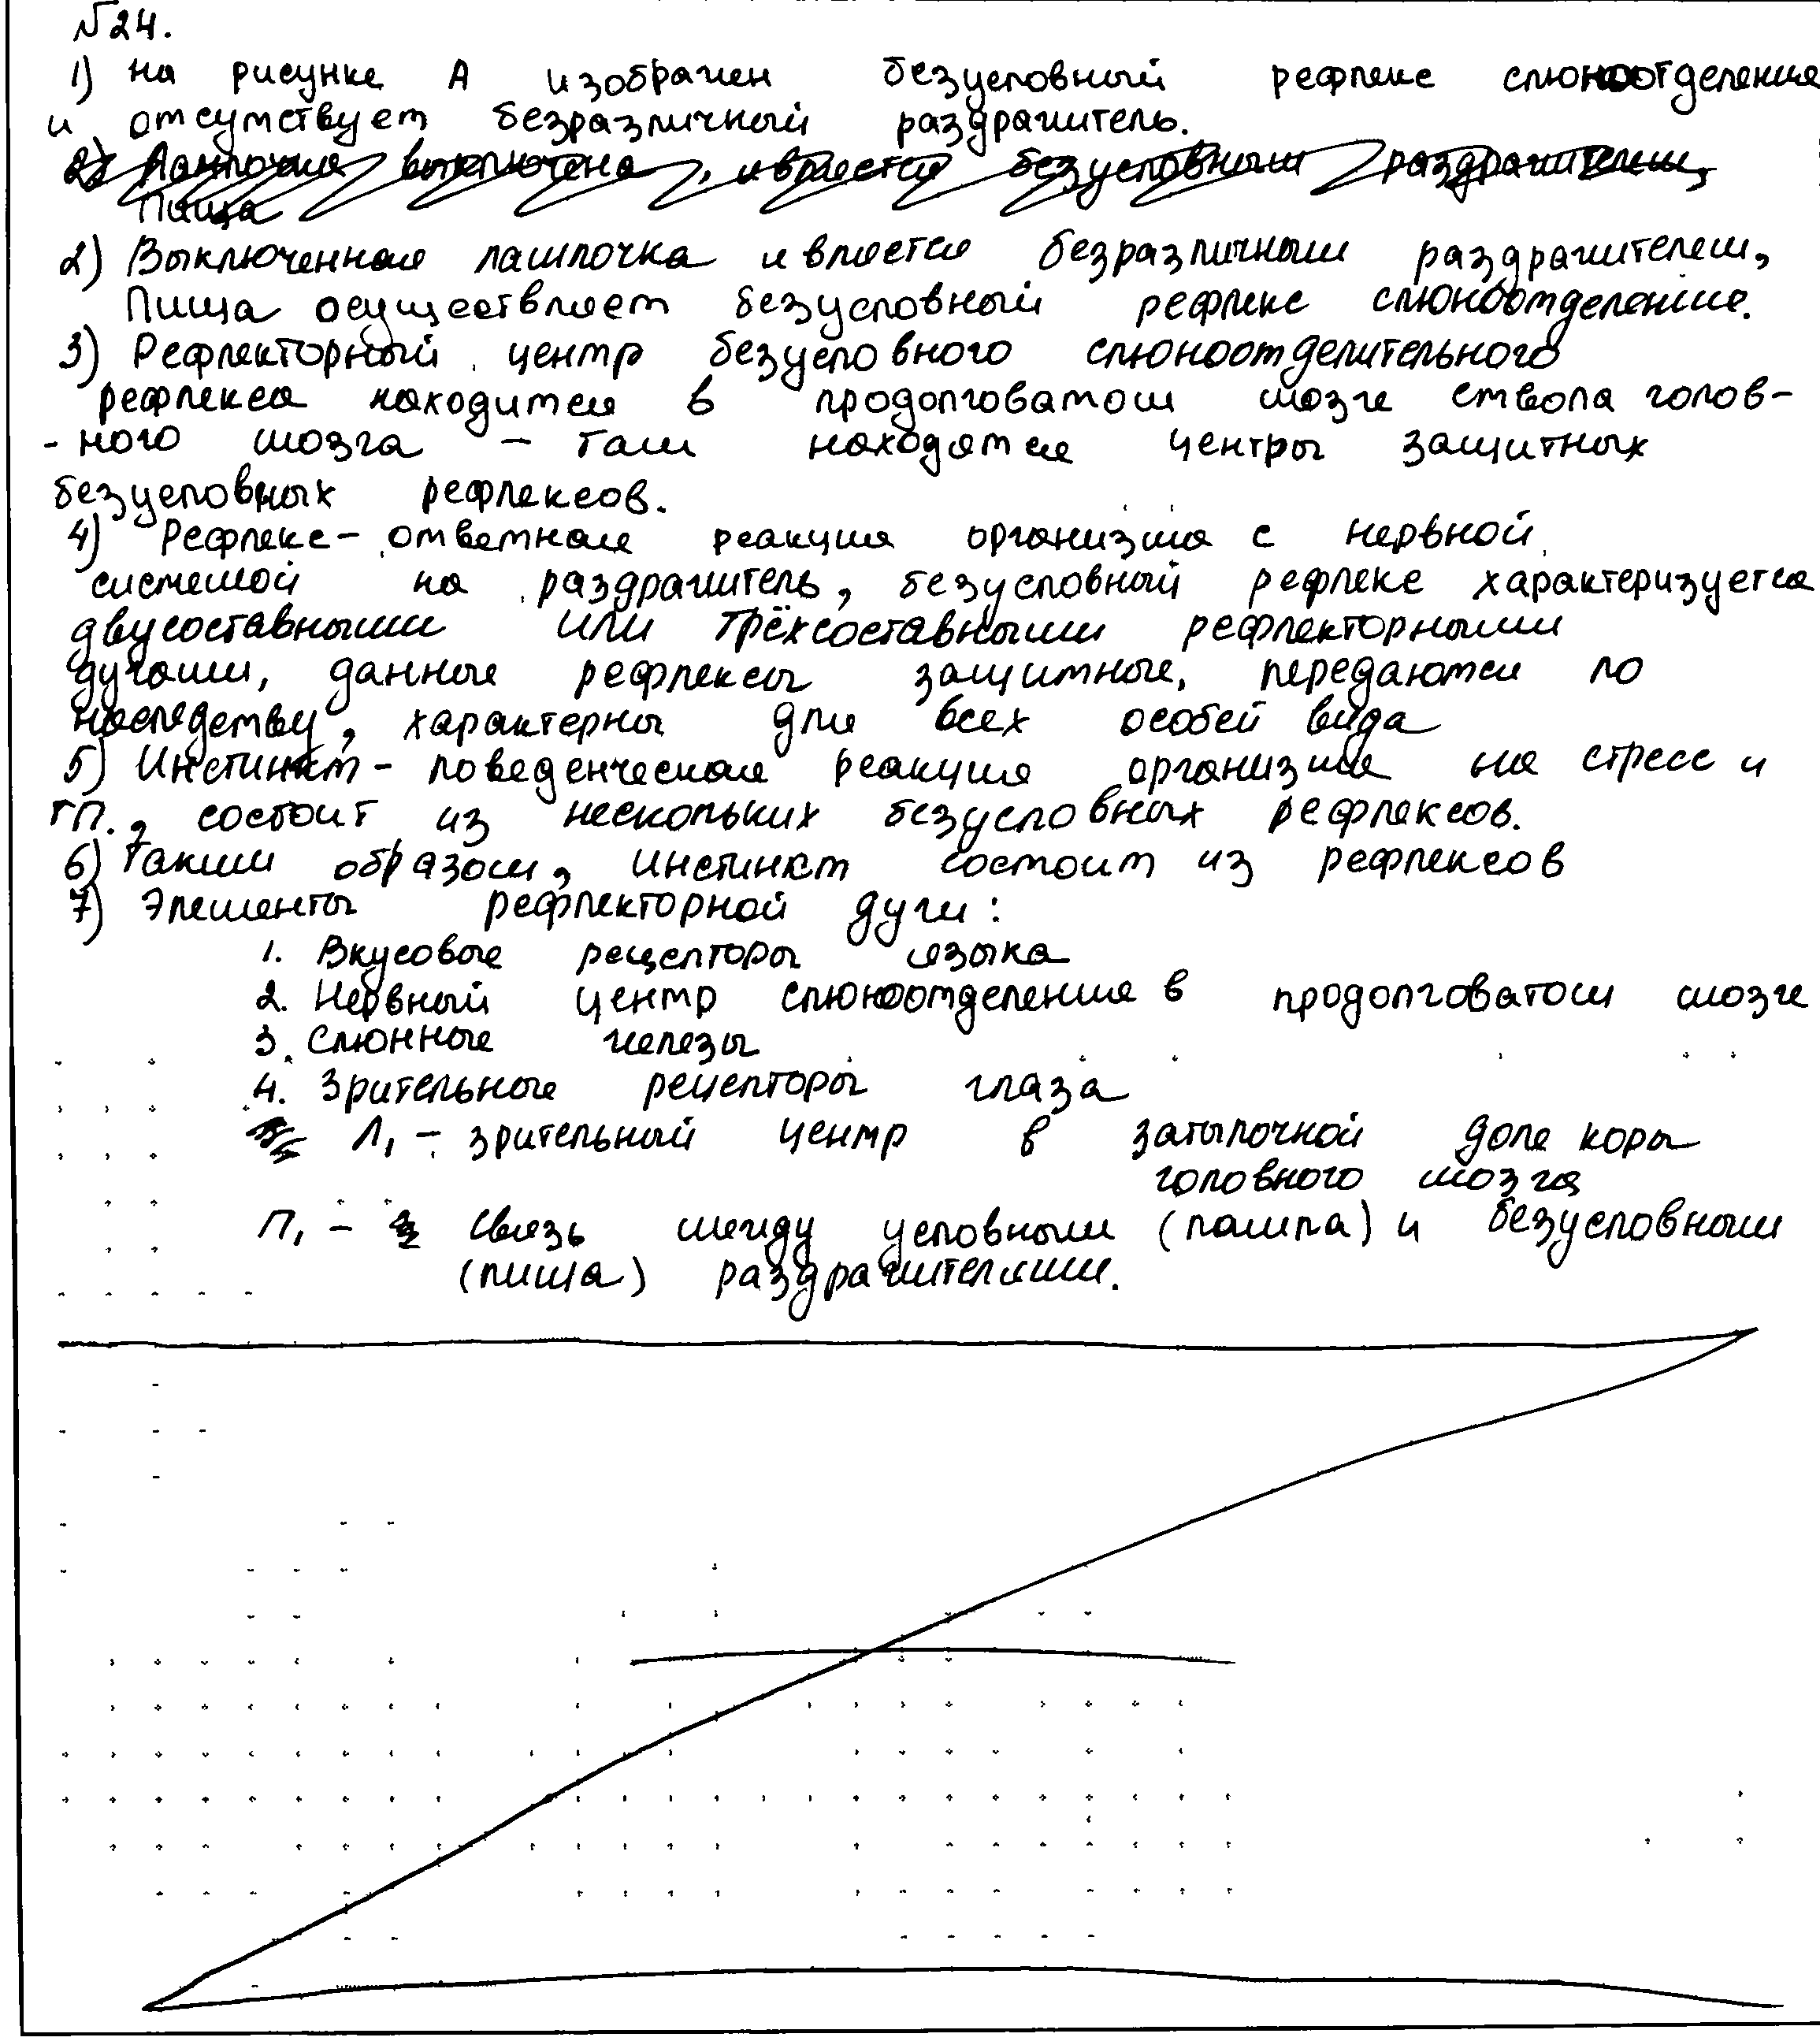 №24.
1) на рисунке А изображен безусловный рефлекс слюноотделения
и отсутствует безразличный раздражитель.
2) Лампочка выключена, является безусловным раздражителем,
Пища
2) Выключенная лампочка является безразличным раздражителем,
Пища осуществляет безусловный рефлекс слюноотделение.
3) Рефлекторный центр безусловного слюноотделительного
рефлекса находится в продолговатом мозге ствола голов-
-ного мозга - там находятся центры защитных
безусловных рефлексов.
4) Рефлекс - ответная реакция организма с нервной
системой на раздражитель, безусловный рефлекс характеризуется
двусоставными или трёхсоставными рефлекторными
дугами, данные рефлексы защитные, передаются по
наследству, характерны для всех особей вида
5) Инстинкт - поведенческая реакция организма на стресс и
тп., состоит из нескольких безусловных рефлексов.
6) Таким образом, инстинкт состоит из рефлексов
7) Элементы рефлекторной дуги:
1. Вкусовые рецепторы языка
2. Нервный центр слюноотделения в продолговатом мозге
3. Слюнные железы
4. Зрительные рецепторы глаза
Л, - зрительный центр в затылочной доле коры
головного мозга
П, - связь между условным (лампа) и безусловным
(пища) раздражителями.